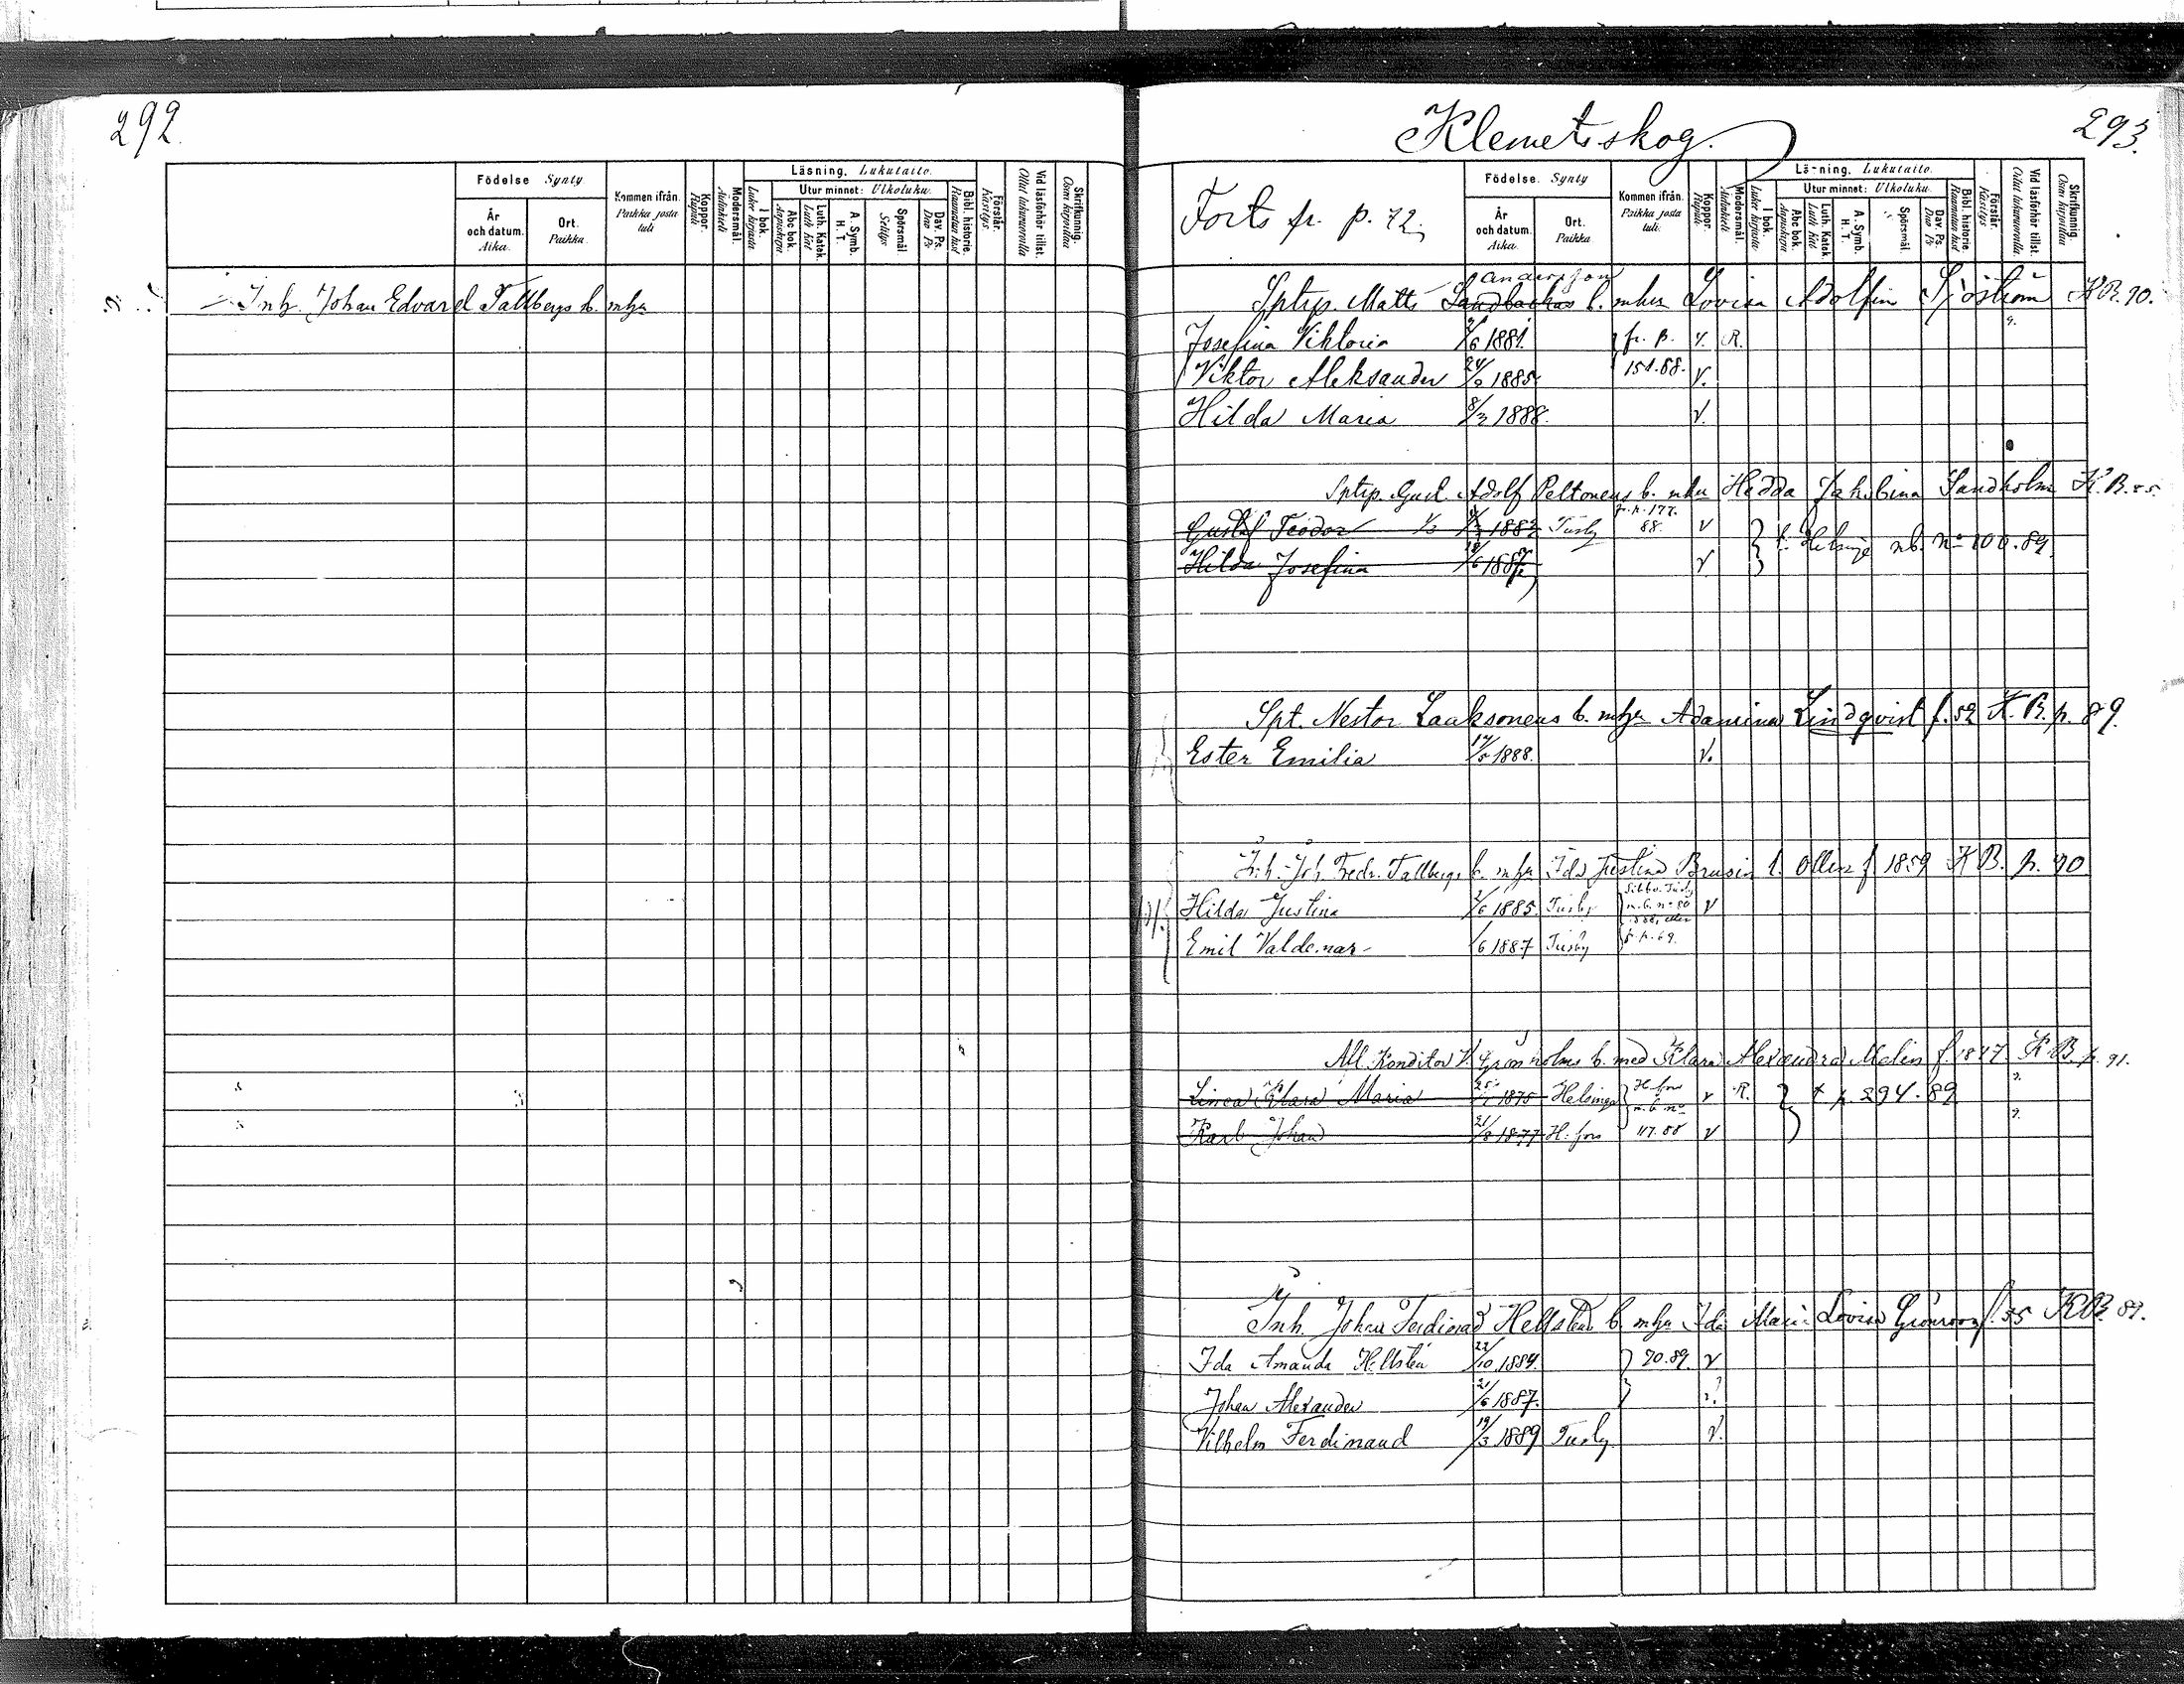 292.
Födelse Synty
År och datum. Aika.
Ort. Paikka.
Kommen ifrån. Paikka josta tuli
Koppor. Rupuli
Modersmål. Äidinkieli
Läsning. Lukutaito.
I bok. Lukee kirjasta
Utur minnet: Ulkoluku.
Abc bok. Aapiskirja
Luth. Katek. Luth Kat
A. Symb. H. T.
Spörsmål. Selitys
Dav. Ps. Dav Ps
Bibl. historie. Raamatun hist
Förstår. Käsitys.
Vid läsförhör tillst. Ollut lukuvuorolla
Skrifkunnig. Osaa kirjoittaa
Inh. Johan Edvard Tallbergs b. mhu
Klemetskog.
293.
Forts fr. p. 72.
Födelse. Synty
År och datum. Aika.
Ort. Paikka
Kommen ifrån. Paikka josta tuli.
Koppor. Rupuli
Modersmål. Äidinkieli
Läsning. Lukutaito.
I bok. Lukee kirjasta
Utur minnet: Ulkoluku.
Abc bok. Aapiskirja
Luth. Katek. Luth Kat
A. Symb. H. T.
Spörsmål.
Dav. Ps. Dav Ps
Bibl. historie Raamatun hist
Förstår. Käsitys.
Vid läsförhör tillst. Ollut lukuvuorolla
Skrifkunnig. Osaa kirjoittaa
Andersson
Sptrp. Matts Sandbackas b. mhu Lovisa Adolfin Sjöström K.B. 70.
Josefina Viktoria /6 1881. fr. p. v. R.
Viktor Aleksander 24/2 1885. 151.88. v.
Hilda Maria 8/3 1888. v.
Sptrp. Gust. Adolf Peltonens b. mhu Hedda Jakobina Sandholm K.B. 55.
fr. p. 177.
Gustaf Teodor 1882 Tusby 88. v
t. Helsinge nb. no 100.89.
Hilda Josefina /6 1887 v
Spt. Nestor Laaksonens b. mhu Adamina Lindqvist f. 52 K.B. p. 89.
Ester Emilia 17/5 1888. v.
Inh. Joh. Fredr. Tallbergs b. mhu Ida Justina Brusin l. Ollin f 1859 K.B. p. 90
Hilda Justina /6 1885. Tusby n.b. no 80 v
Emil Valdemar /6 1887 Tusby p. 69.
All. Konditor K. Grönholms b. med Klara Alexandra Malin f. 1847 K.B. p. 91.
Linea Klara Maria 25/ 1875 Helsinge H.fors v R. t p. 294.89
n.b. no
Karl Johan 21/8 1877 H.fors 117.88 v
Inh. Johan Ferdinad Hellstens b. mhu Ida Maria Lovisa Grönroos f. 55 K.B. 89.
Ida Amanda Hellsten 22/10 1884. 70.89. v
Johan Alexander 21/6 1887. v.
Vilhelm Ferdinand 19/3 1889 Tusby v.